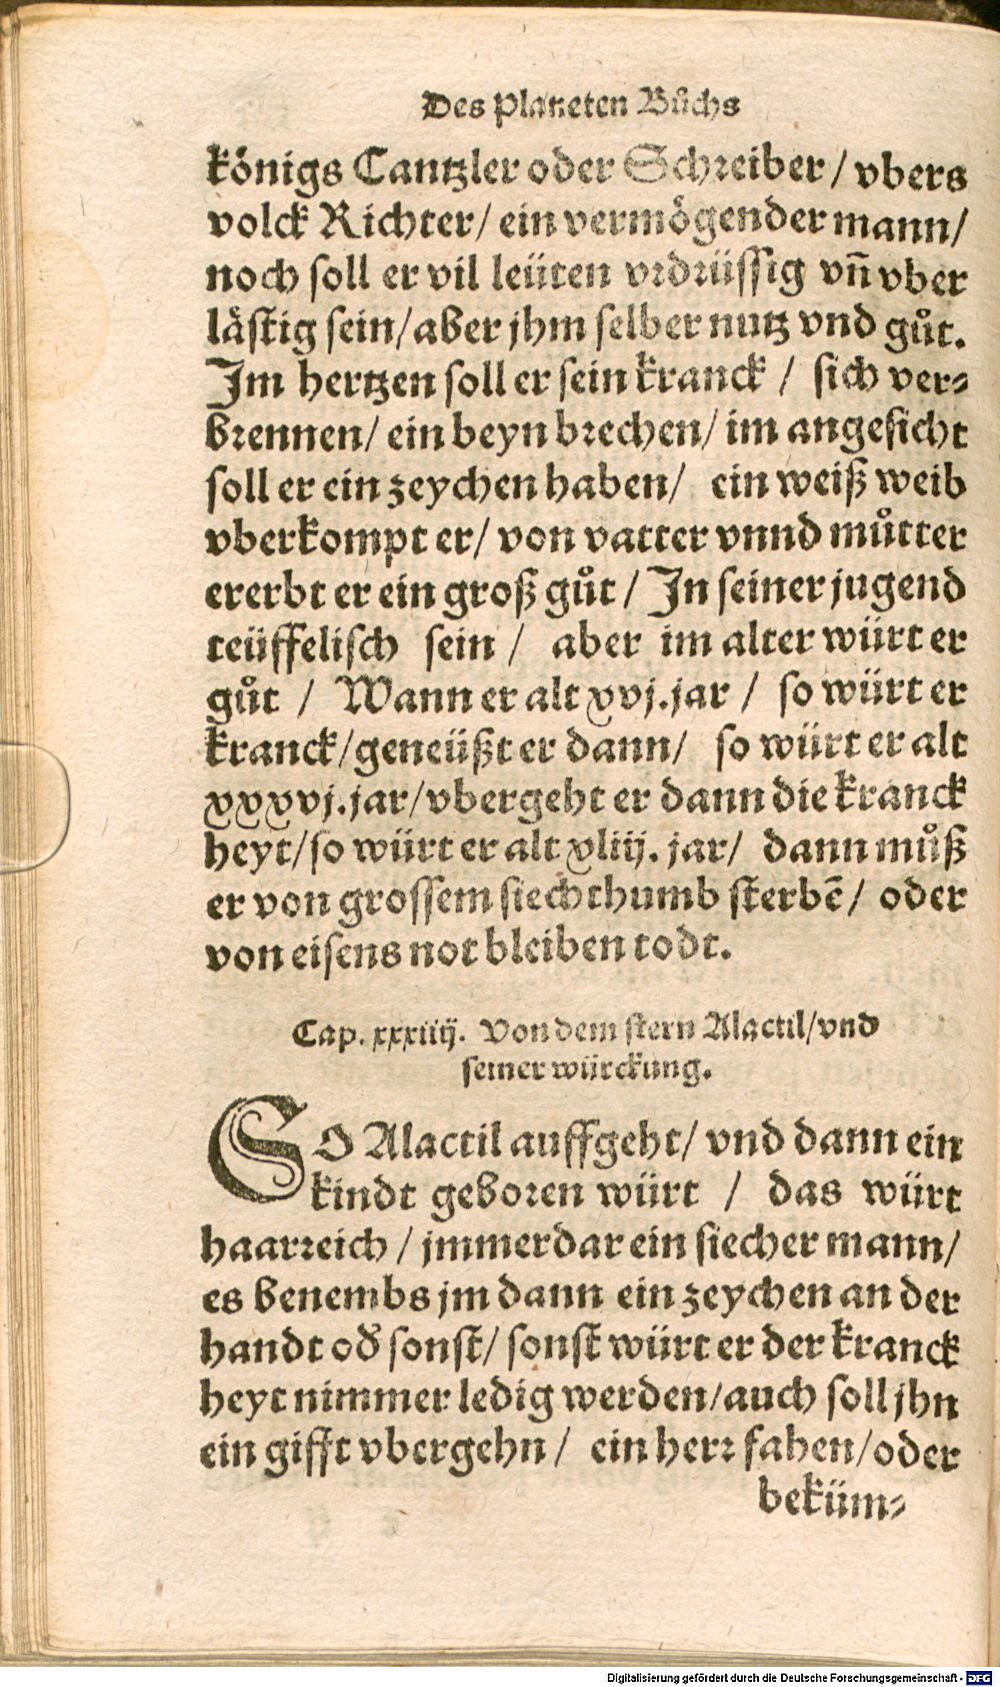 Des Planeten Bůchs
königs Cantzler oder Schreiber / vbers
volck Richter / ein vermögender mann /
noch soll er vil leüten vrdrüssig vñ vber
lästig sein / aber jhm selber nutz vnd gůt.
Im hertzen soll er sein kranck / sich ver⸗
brennen / ein beyn brechen / im angesicht
soll er ein zeychen haben / ein weiß weib
vberkompt er / von vatter vnnd můtter
ererbt er ein groß gůt / In seiner jugend
teüffelisch sein / aber im alter würt er
gůt / Wann er alt xvj. jar / so würt er
kranck / geneüßt er dann / so würt er alt
xxxvj. jar / vbergeht er dann die kranck
heyt / so würt er alt xliij. jar / dann můß
er von grossem siechthumb sterbē / oder
von eisens not bleiben todt.
Cap. xxxiiij. Von dem stern Alactil / vnd
seiner würckung.
SO Alactil auffgeht / vnd dann ein
kindt geboren würt / das würt
haarreich / jmmerdar ein siecher mann /
es benembs jm dann ein zeychen an der
handt od̕ sonst / sonst würt er der kranck
heyt nimmer ledig werden / auch soll jhn
ein gifft vbergehn / ein herr fahen / oder
beküm⸗
Digitalisierung gefördert durch die Deutsche Forschungsgemeinschaft - DFG